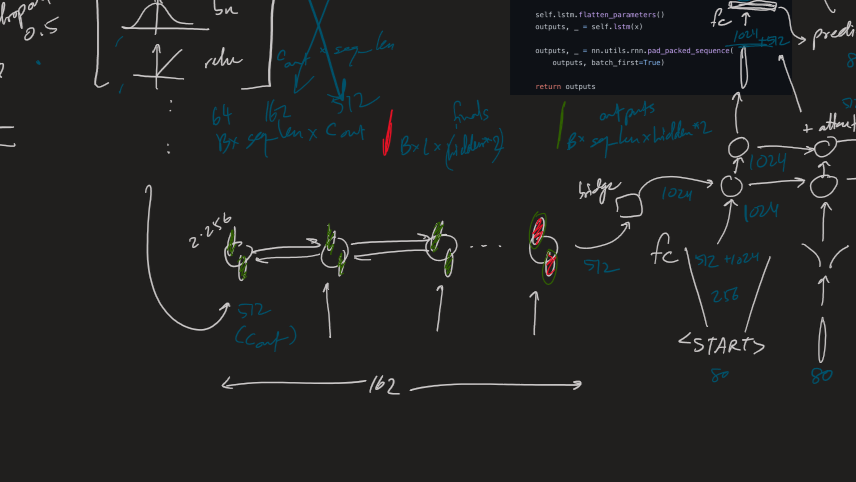 0.5
bn
relu
Cout × seq len
64 162 512
B× seq len × Cout
finals
B×1×(hidden*2)
outputs
B× seq len×hidden*2
self.lstm.flatten_parameters()
outputs, _ = self.lstm(x)
outputs, _ = nn.utils.rnn.pad_packed_sequence(
outputs, batch_first=True)
return outputs
fc
1024
+512
predi
+ attent
bridge
1024
1024
1024
2·256
...
512
512
(Cout)
fc
512+1024
256
<START>
80
80
162